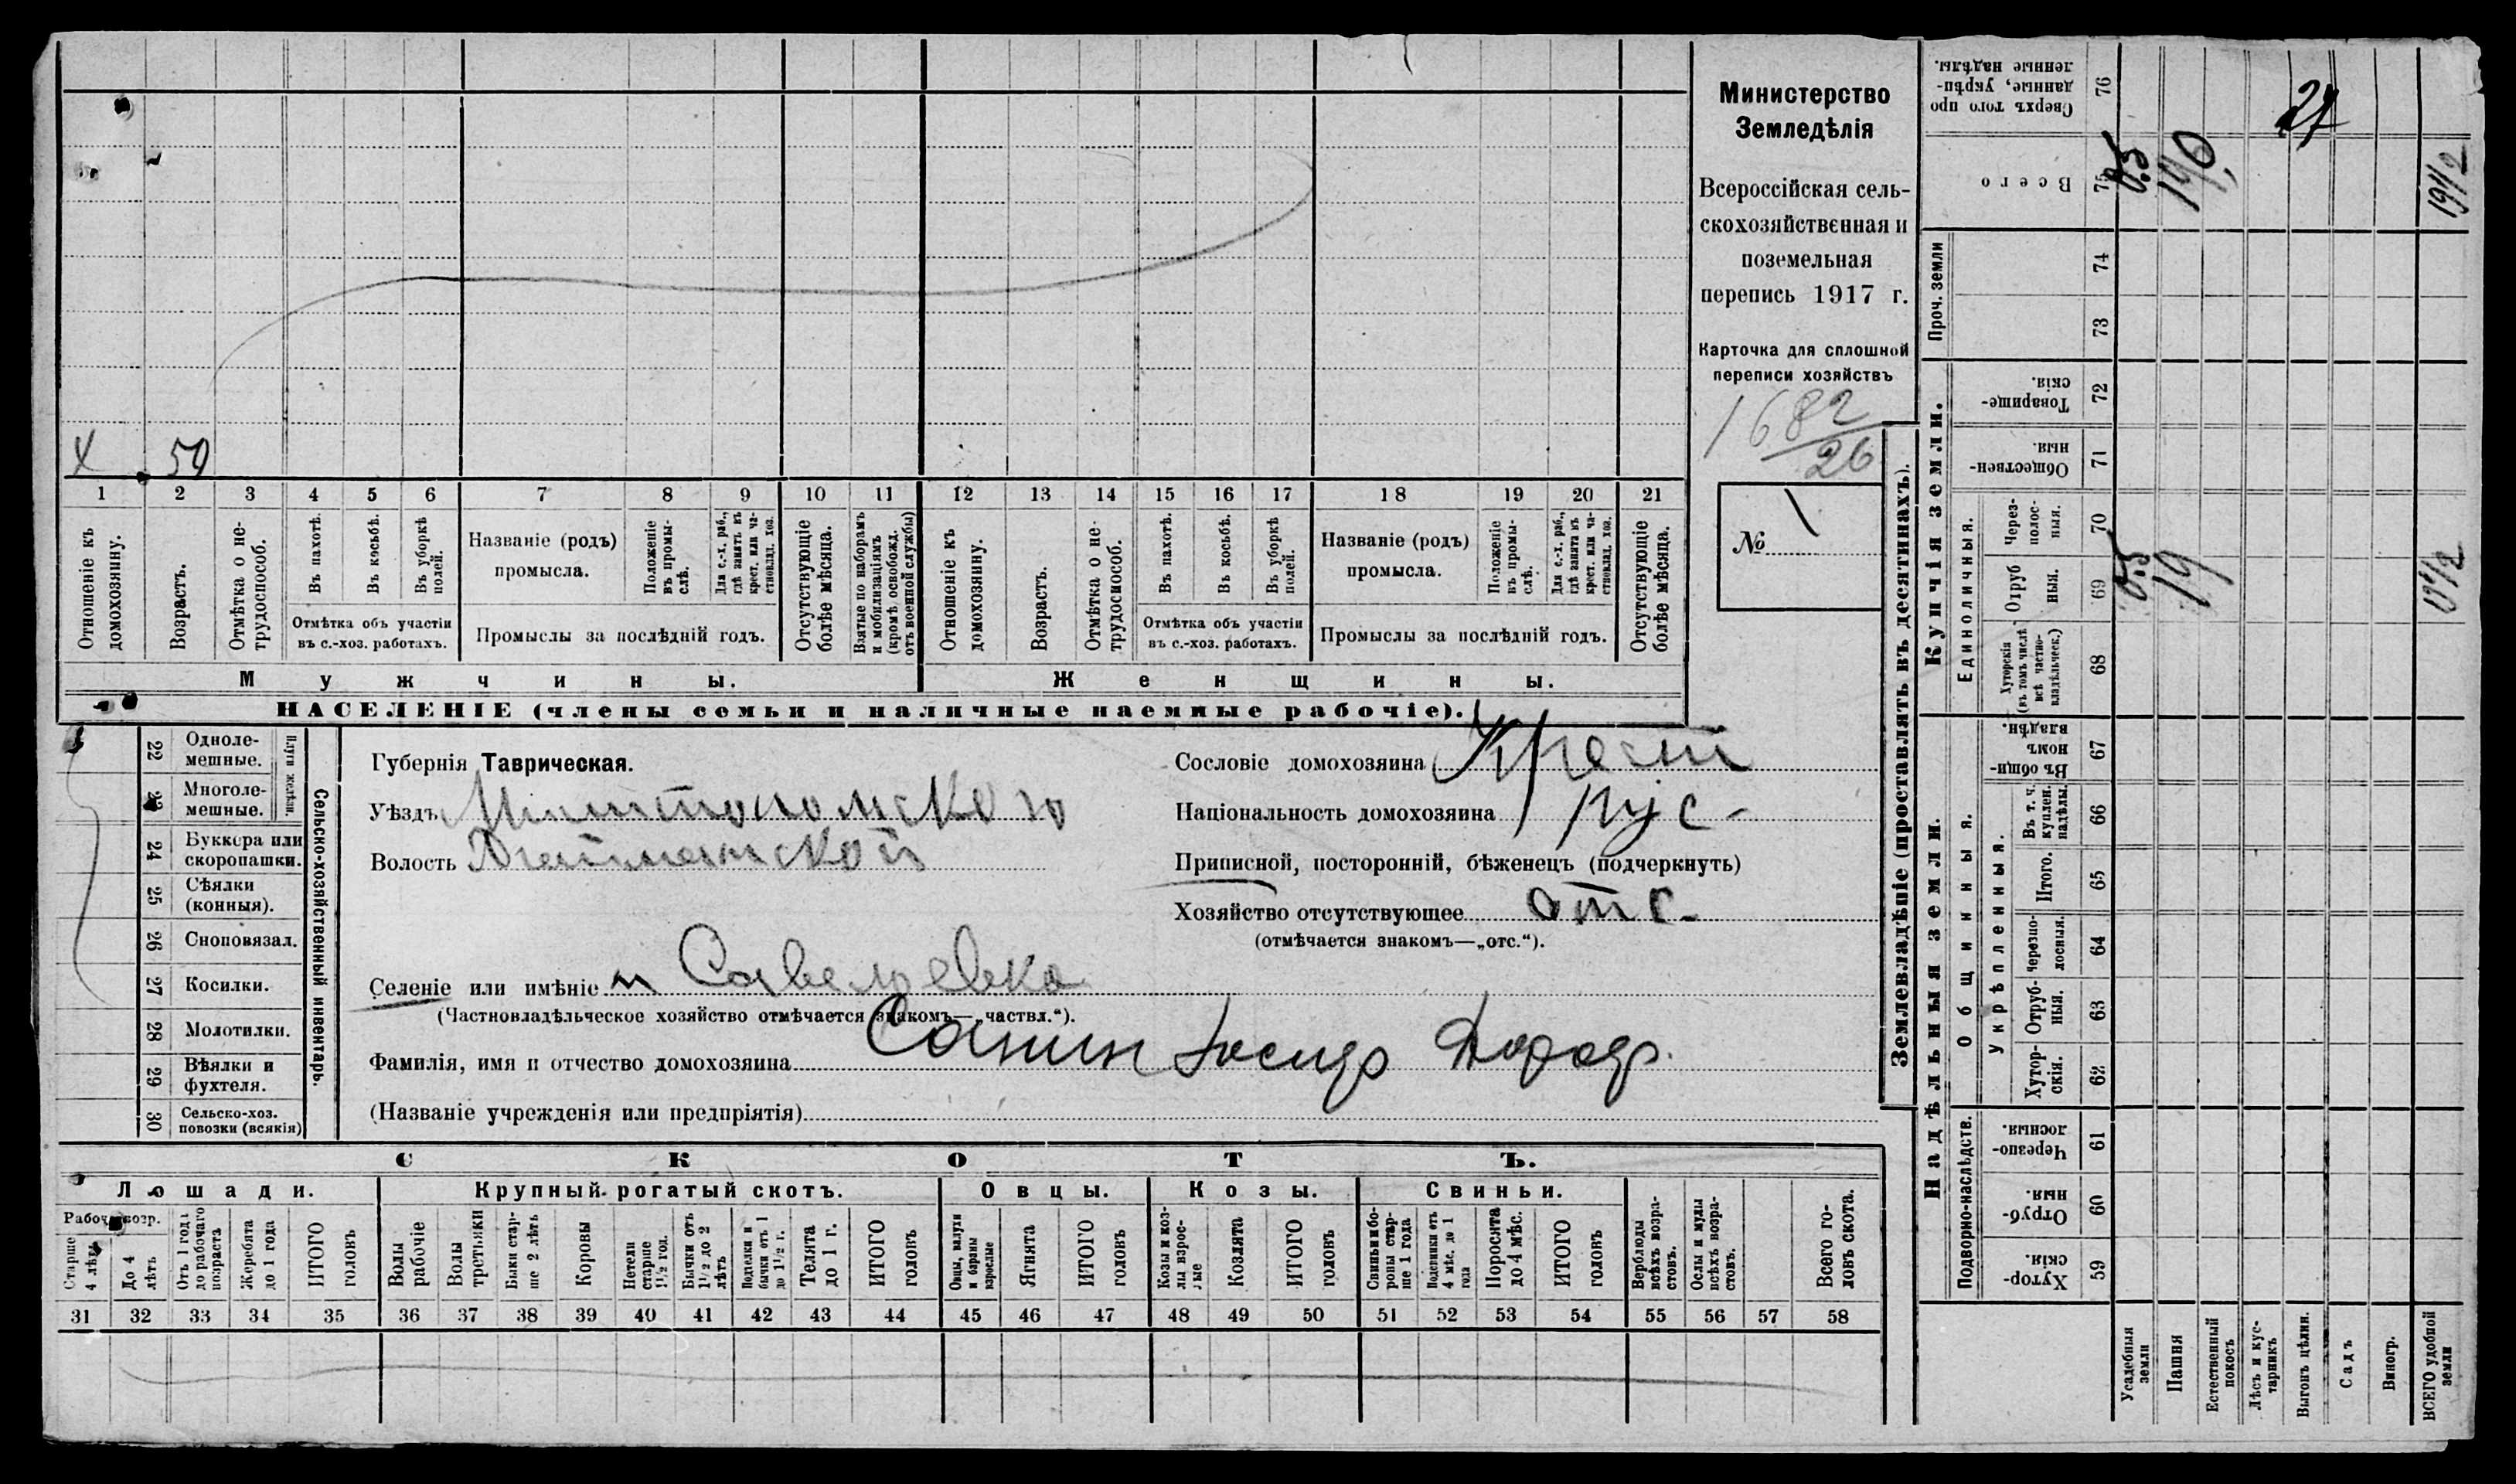 4 59
1 2 3 4 5 6 7 8 9 10 11 12 13 14 15 16 17 18 19 20 21
Отношеніе къ домохозяину.
Возрастъ.
Отмѣтка о не-трудоспособ.
Въ пахотѣ.
Въ косьбѣ.
Въ уборкѣ полей.
Отмѣтка объ участіи
въ с.-хоз. работахъ.
Названіе (родъ)
промысла.
Положеніе въ промы-слѣ.
Для с.-х. раб., гдѣ занятъ въ крест. или ча-стновлад. хоз.
Промыслы за послѣдній годъ.
Отсутствующіе болѣе мѣсяца.
Взятые по наборамъ и мобилизаціямъ (кромѣ освобожд. отъ военной службы)
Отношеніе къ домохозяину.
Возрастъ.
Отмѣтка о не-трудоспособ.
Въ пахотѣ.
Въ косьбѣ.
Въ уборкѣ полей.
Отмѣтка объ участіи
въ с.-хоз. работахъ.
Названіе (родъ)
промысла.
Положеніе въ промы-слѣ.
Для с.-х. раб., гдѣ занята въ крест. или ча-стновлад. хоз.
Промыслы за послѣдній годъ.
Отсутствующіе болѣе мѣсяца.
Мужчины.
Женщины.
НАСЕЛЕНІЕ (члены семьи и наличные наемные рабочіе).
Министерство
Земледѣлія
Всероссійская сель-
скохозяйственная и
поземельная
перепись 1917 г.
Карточка для сплошной
переписи хозяйствъ
1682
26
№ 1
22 Одноле-мешные.
23 Многоле-мешные.
Плуги желѣзн.
24 Буккера или скоропашки.
25 Сѣялки (конныя).
26 Сноповязал.
27 Косилки.
28 Молотилки.
29 Вѣялки и фухтеля.
30 Сельско-хоз. повозки (всякія)
Сельско-хозяйственный инвентарь.
Губернія Таврическая.
Уѣздъ
Волость
Сословіе домохозяина Крест
Національность домохозяина рус-
Приписной, посторонній, бѣженецъ (подчеркнуть)
Хозяйство отсутствующее отс.
(отмѣчается знакомъ—„отс.“).
Селеніе или имѣніе Савельевка
(Частновладѣльческое хозяйство отмѣчается знакомъ—„частвл.“).
Фамилія, имя и отчество домохозяина Санин Іосиф Дороф.
(Названіе учрежденія или предпріятія)
СКОТЪ.
Лошади.
Крупный рогатый скотъ.
Овцы.
Козы.
Свиньи.
Рабоч. возр.
Старше 4 лѣтъ
До 4 лѣтъ
Отъ 1 года до рабочаго возраста
Жеребята до 1 года
ИТОГО головъ
Волы рабочіе
Волы третьяки
Быки стар-ше 2 лѣтъ
Коровы
Нетели старше 1½ год.
Бычки отъ 1½ до 2 лѣтъ
Подтелки и бычки отъ 1 до 1½ г.
Телята до 1 г.
ИТОГО головъ
Овцы, валухи и бараны взрослые
Ягнята
ИТОГО головъ
Козы и коз-лы взрос-лые
Козлята
ИТОГО головъ
Свиньи и бо-ровы стар-ше 1 года
Подсвинки отъ 4 мѣс. до 1 года
Поросята до 4 мѣс.
ИТОГО головъ
Верблюды всѣхъ возра-стовъ.
Ослы и мулы всѣхъ возра-стовъ.
Всего го-ловъ скота.
31 32 33 34 35 36 37 38 39 40 41 42 43 44 45 46 47 48 49 50 51 52 53 54 55 56 57 58
Землевладѣніе (проставлять въ десятинахъ).
Надѣльныя земли.
Купчія земли.
Проч. земли
Сверхъ того про данные, укрѣп-ленные надѣлы. 76 27
Всего 75 0.5 19½
74
73
Товарище-скія. 72
Обществен-ныя. 71
Единоличныя.
Через-полос-ныя. 70
Отруб ныя. 69 0.5 19 19½
Хуторскія (въ томъ числѣ всѣ частно-владѣльческ.) 68
Общинныя.
Въ общин-номъ владѣн. 67
Укрѣпленныя.
Въ т. ч. куплен. надѣлы. 66
Итого. 65
Черезпо-лосныя. 64
Отруб-ныя. 63
Хутор-скія. 62
Подворно-наслѣдств.
Черезпо-лосныя. 61
Отруб-ныя. 60
Хутор-скія. 59
Усадебныя земли
Пашня
Естественный покосъ
Лѣсъ и кус-тарникъ
Выгонъ цѣлин.
Садъ
Виногр.
ВСЕГО удобной земли